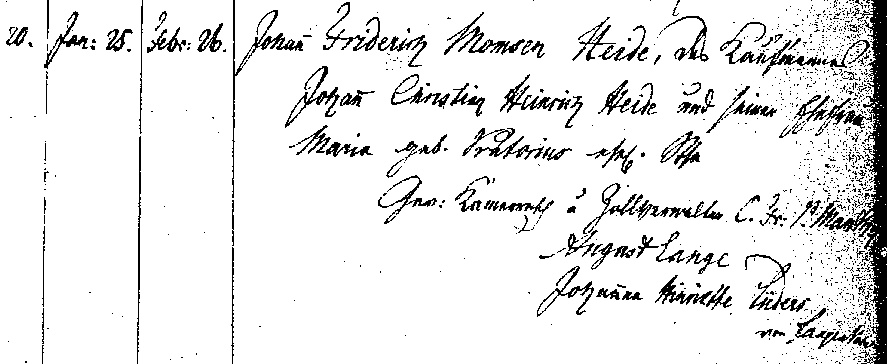 20. Jan: 25. Febr: 26. Johan̄ Friderich Momsen Heide, des Kaufmannes
Johan̄ Christian Heinrich Heide und seiner Ehefrau
Maria geb. Prätorius ehel. Sohn
Gev: Kammerrath u Zollverwalter C. Fr.
August Lange
Johanna Henriette Lüders
von